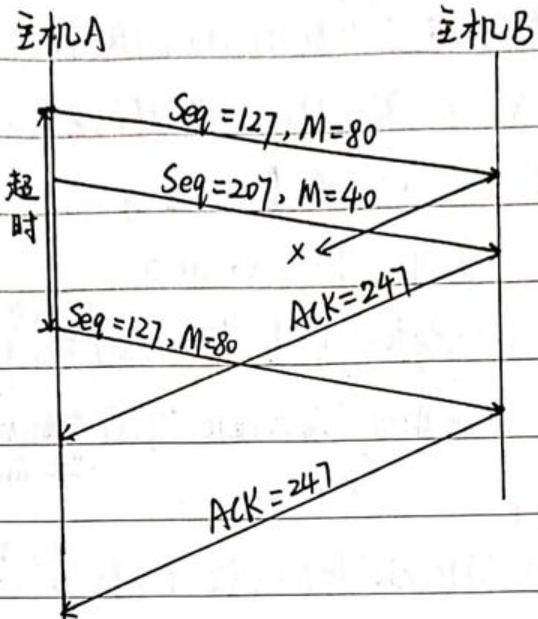 主机A
主机B
Seq=127, M=80
超时
Seq=207, M=40
×
ACK=247
Seq=127, M=80
ACK=247